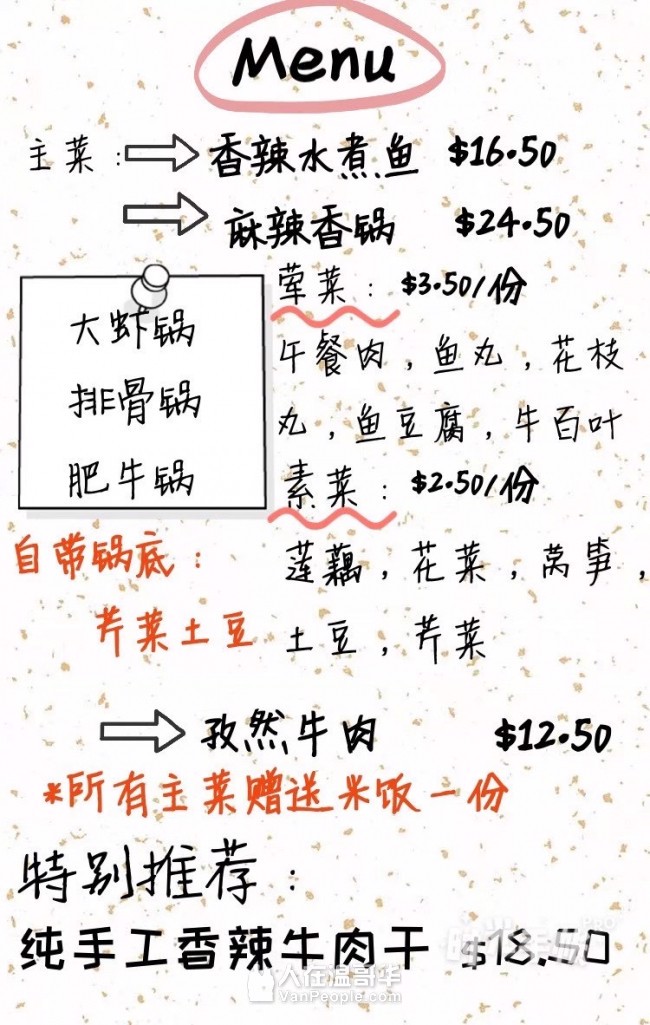 Menu
主菜： 香辣水煮鱼 $16.50
麻辣香锅 $24.50
大虾锅
排骨锅
肥牛锅
自带锅底：
芹菜土豆
荤菜： $3.50/份
午餐肉，鱼丸，花枝
丸，鱼豆腐，牛百叶
素菜： $2.50/份
莲藕，花菜，莴笋，
土豆，芹菜
孜然牛肉 $12.50
*所有主菜赠送米饭一份
特别推荐：
纯手工香辣牛肉干 $18.50
人在温哥华
VanPeople.com